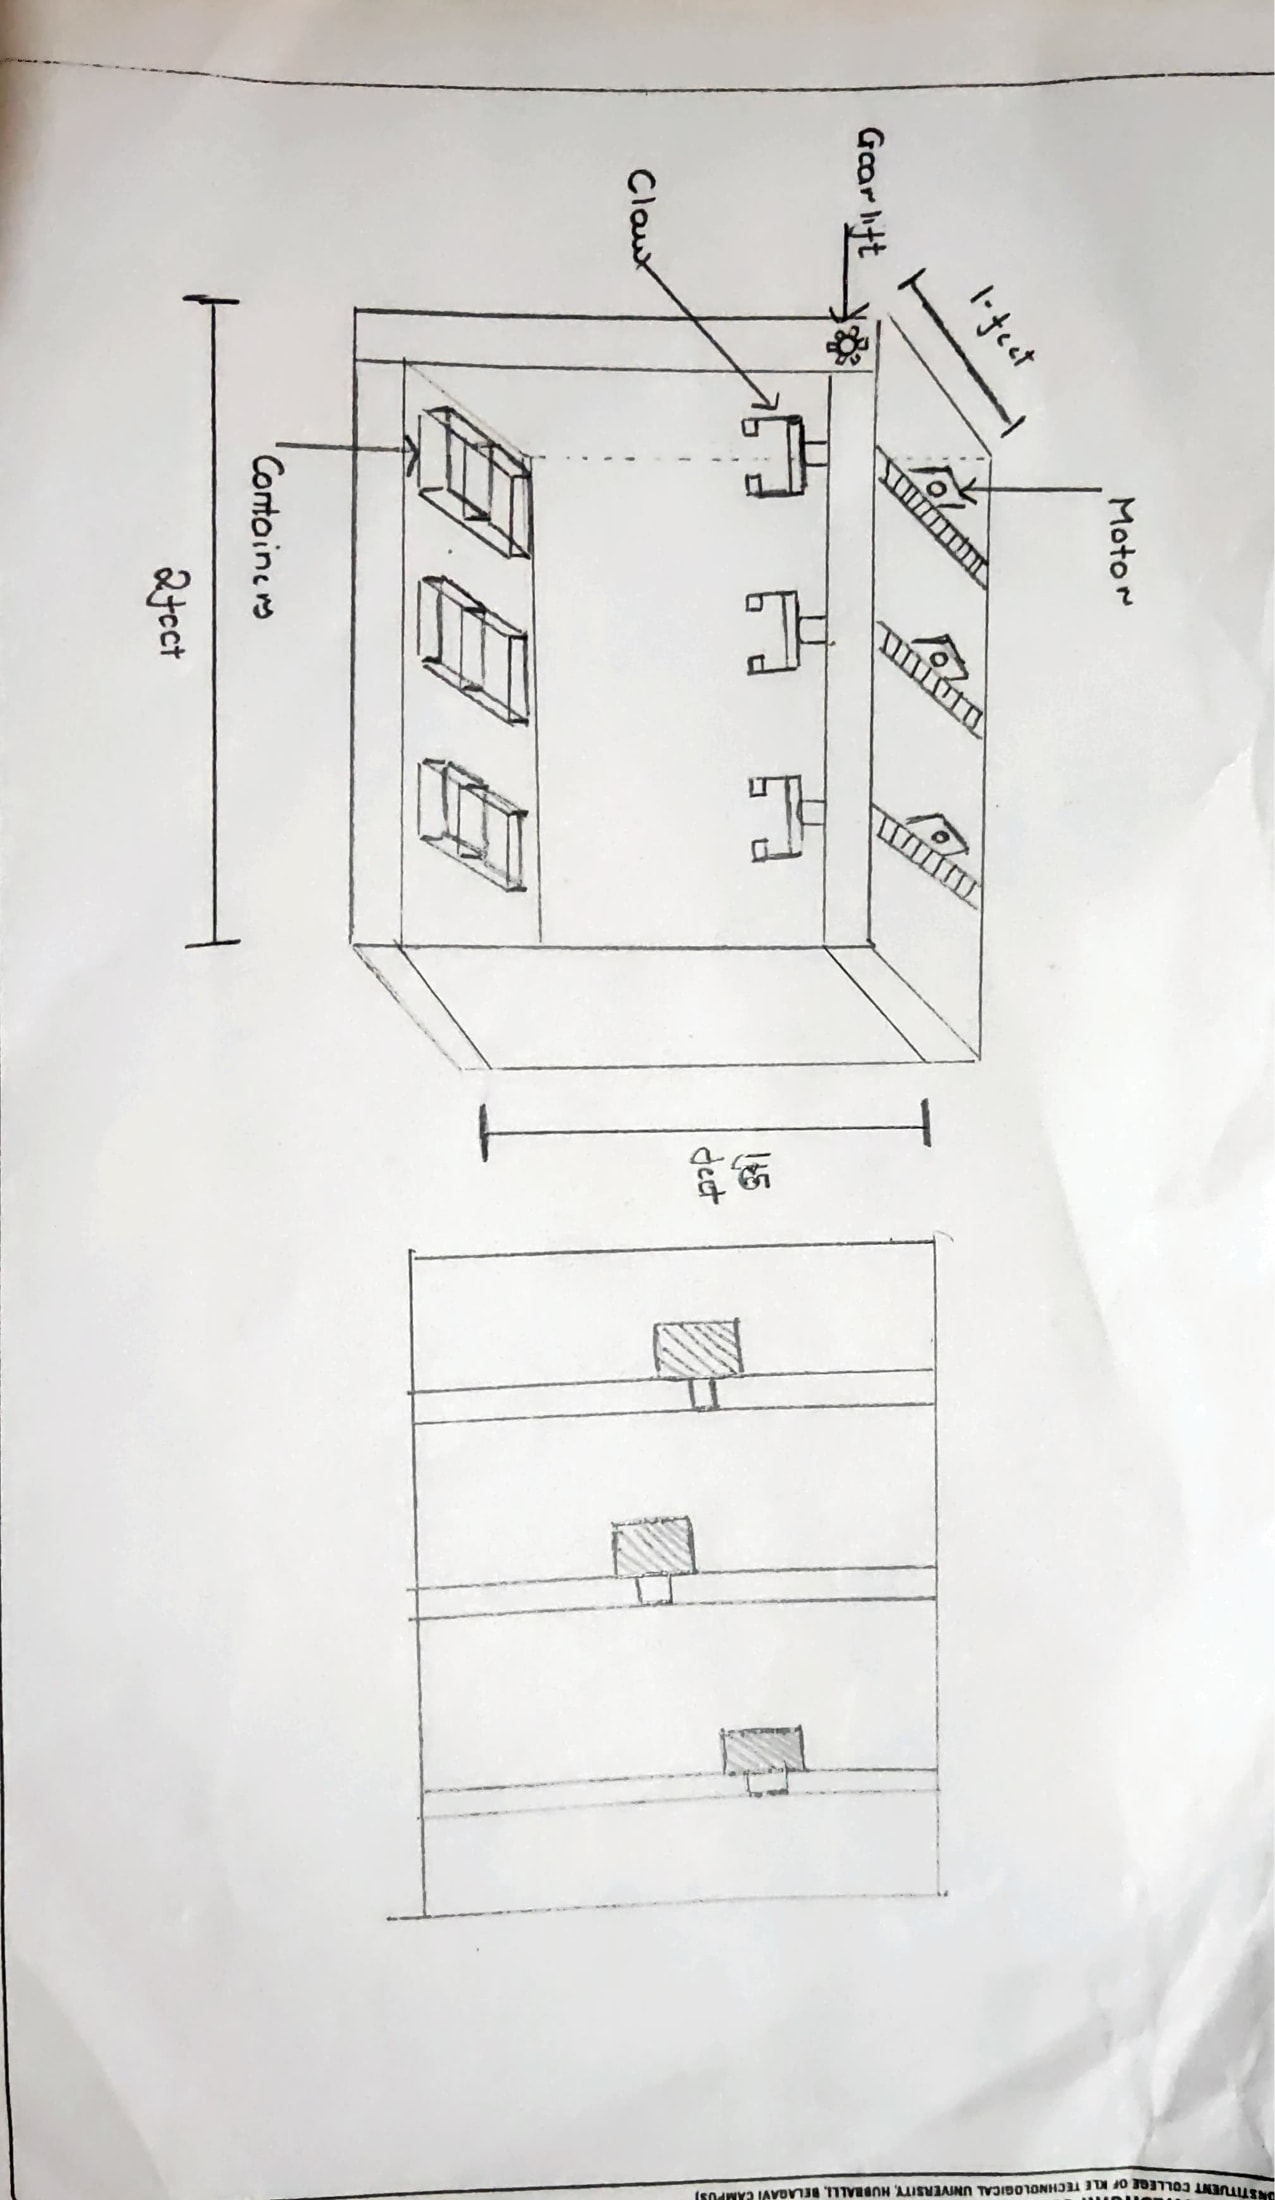 Motor
1-feet
Gear lift
Claw
1.5
feet
Containers
2feet
CONSTITUENT COLLEGE OF KLE TECHNOLOGICAL UNIVERSITY, HUBBALLI, BELAGAVI CAMPUS)